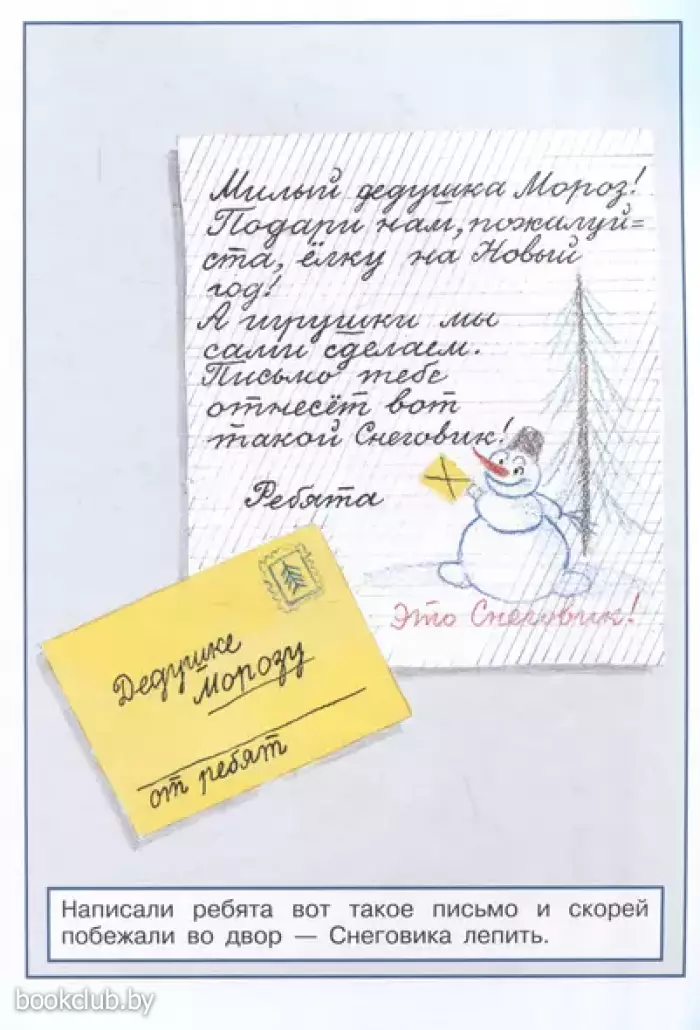 Милый дедушка Мороз!
Подари нам, пожалуй=
ста, ёлку на Новый
год!
А игрушки мы
сами сделаем.
Письмо тебе
отнесёт вот
такой Снеговик!
Ребята
Это Снеговик!
Дедушке
Морозу
от ребят
Написали ребята вот такое письмо и скорей
побежали во двор — Снеговика лепить.
bookclub.by